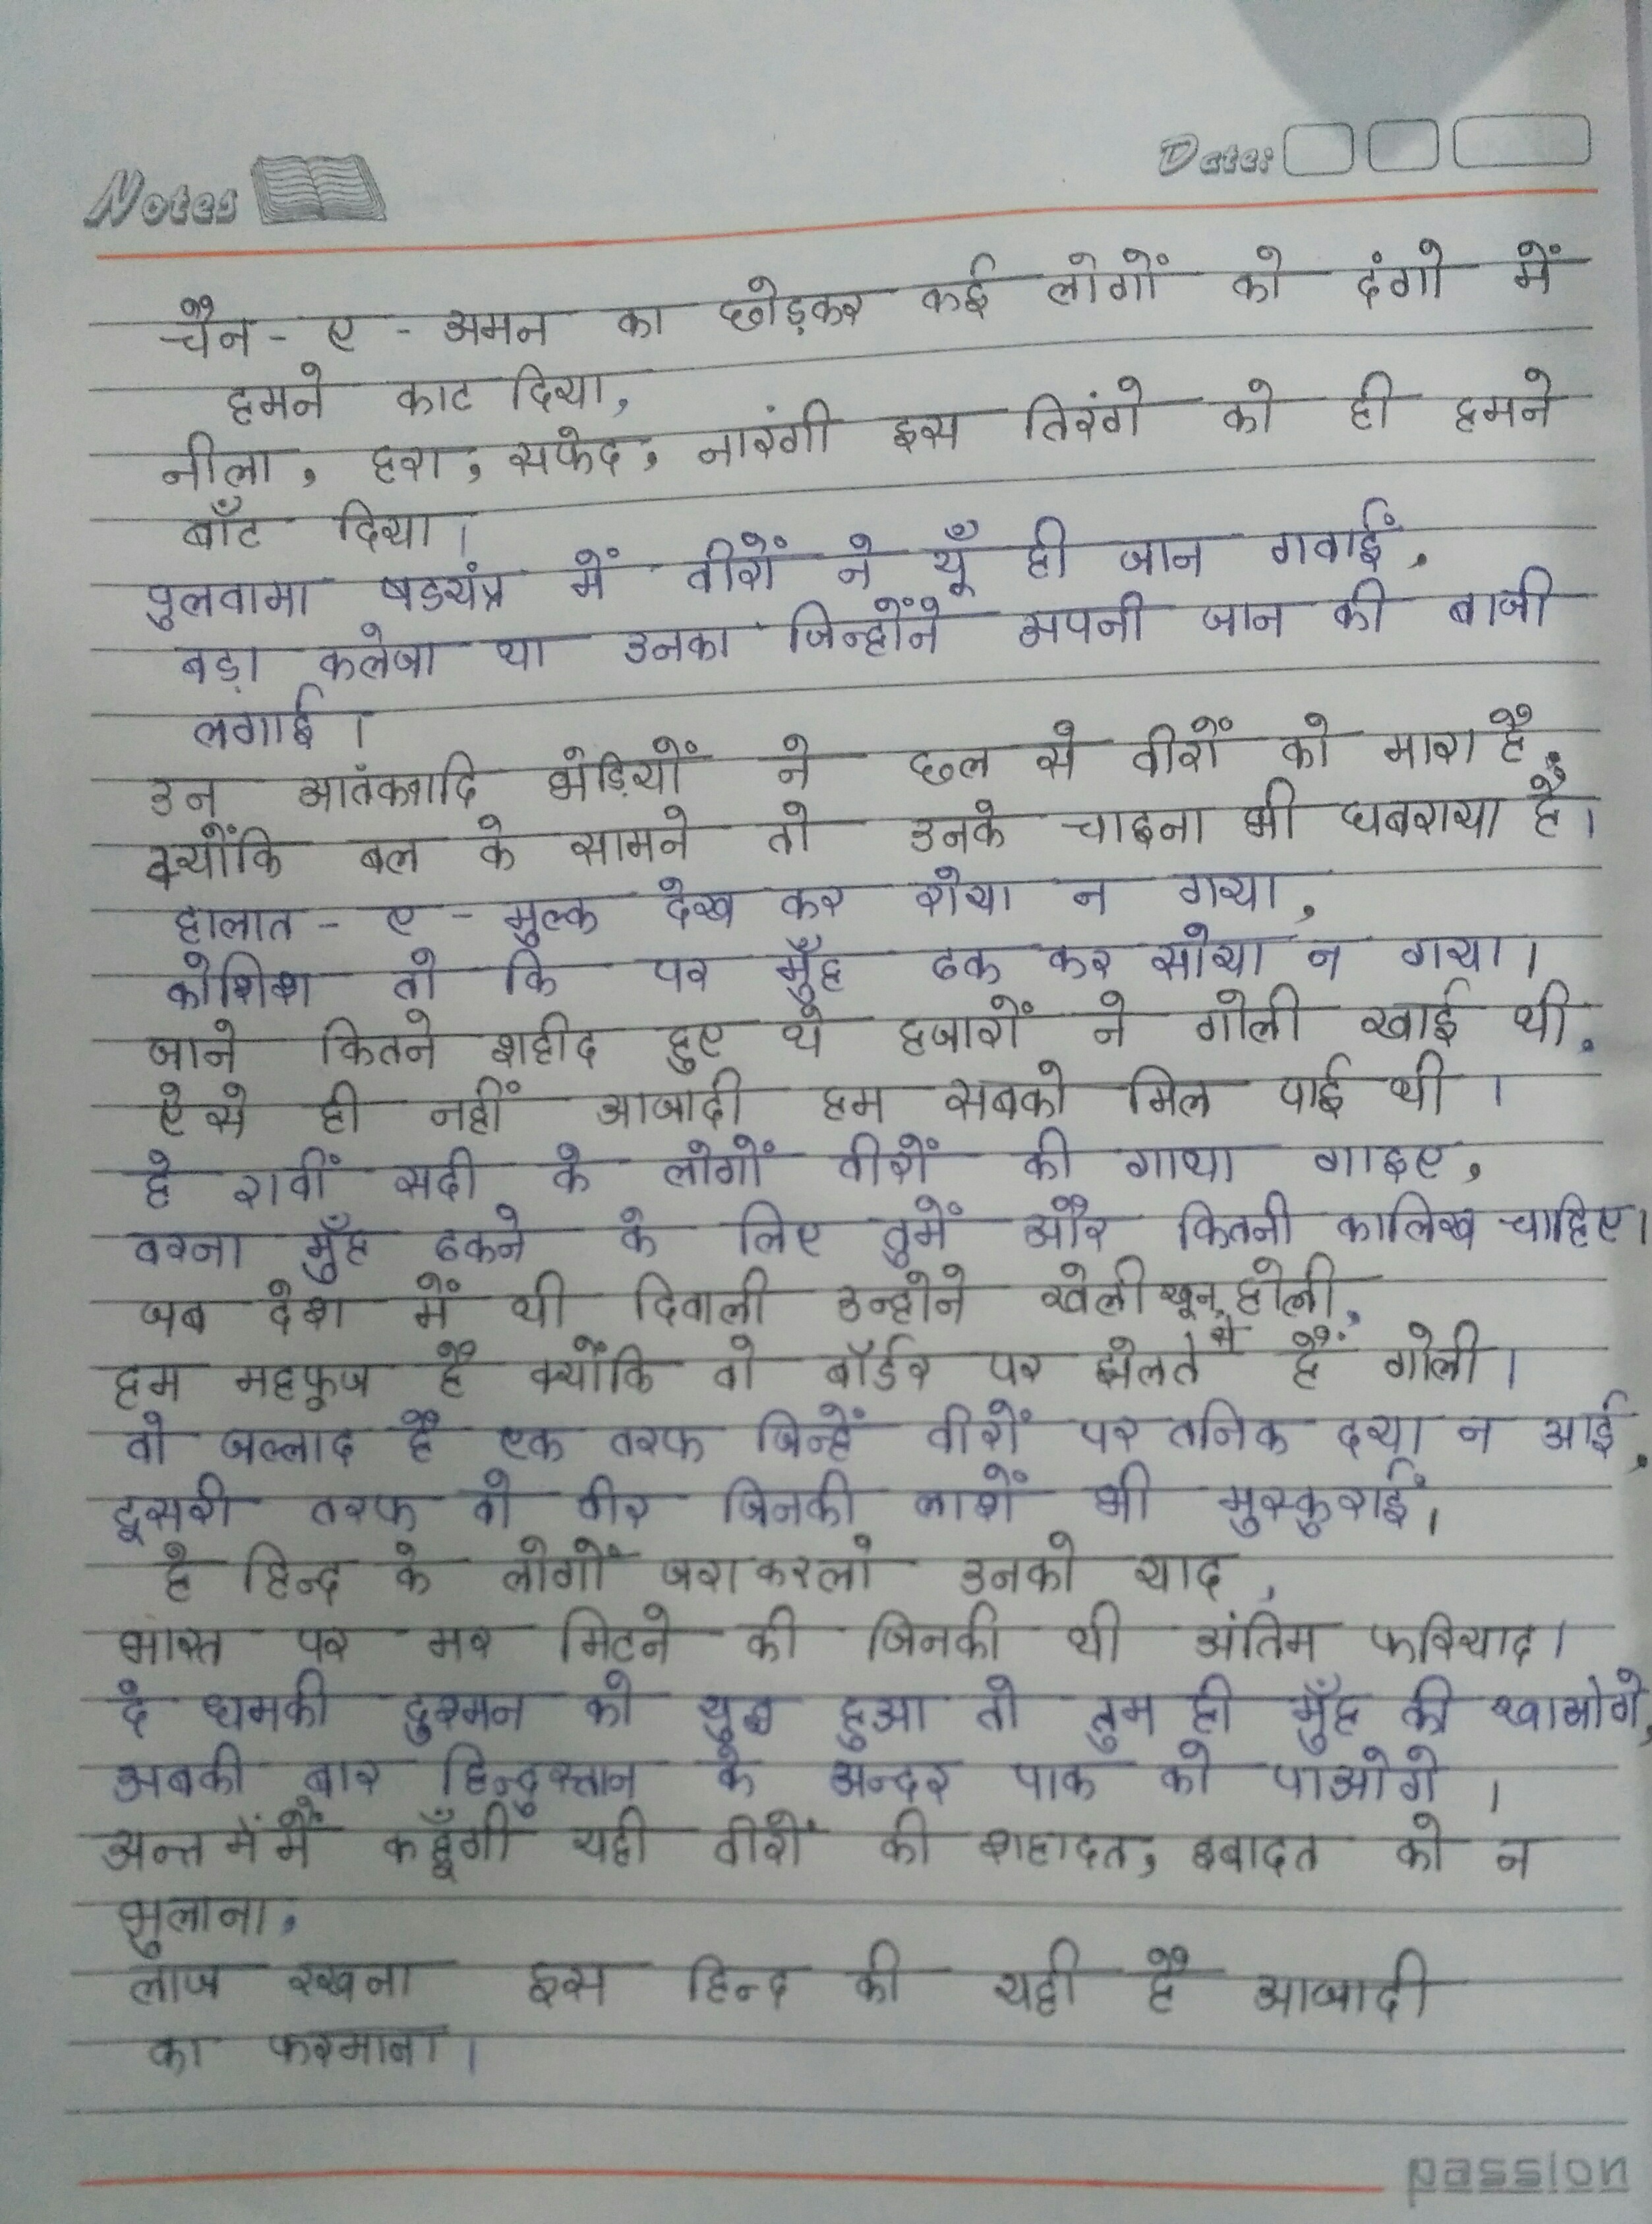 Notes
Date:
चैन - ए - अमन का छोड़कर कई लोगों को दंगो में
हमने काट दिया,
नीला, हरा, सफेद, नारंगी इस तिरंगे को ही हमने
बाँट दिया।
पुलवामा षडयंत्र में वीरों ने यूँ ही जान गवाईं,
बड़ा कलेजा था उनका जिन्होंने अपनी जान की बाजी
लगाई।
उन आतंकवादि भेड़ियों ने छल से वीरों को मारा है,
क्योंकि बल के सामने तो उनके चाइना भी घबराया है।
हालात - ए - मुल्क देख कर रोया न गया,
कोशिश तो कि पर मुँह ढक कर सोया न गया।
जाने कितने शहीद हुए थे हजारों ने गोली खाई थी,
ऐसे ही नहीं आजादी हम सबको मिल पाई थी।
हे रावीं सदी के लोगों वीरों की गाथा गाइए,
वरना मुँह ढकने के लिए तुमें और कितनी कालिख चाहिए।
जब देश में थी दिवाली उन्होने खेली खून से होली,
हम महफूज है क्योंकि वो बॉर्डर पर झेलते हैं गोली।
वो जल्लाद है एक तरफ जिन्हें वीरों पर तनिक दया न आई,
दूसरी तरफ वो वीर जिनकी लाशें भी मुस्कुराईं।
हे हिन्द के लोगों जरा करलो उनको याद,
भारत पर मर मिटने की जिनकी थी अंतिम फरियाद।
दे धमकी दुश्मन को युद्ध हुआ तो तुम ही मुँह की खाओगे,
अबकी बार हिन्दुस्तान के अन्दर पाक को पाओगे।
अन्त में मैं कहूँगी यही वीरों की शहादत, इबादत को न
भुलाना,
लाज रखना इस हिन्द की यही है आजादी
का फरमाना।
passion